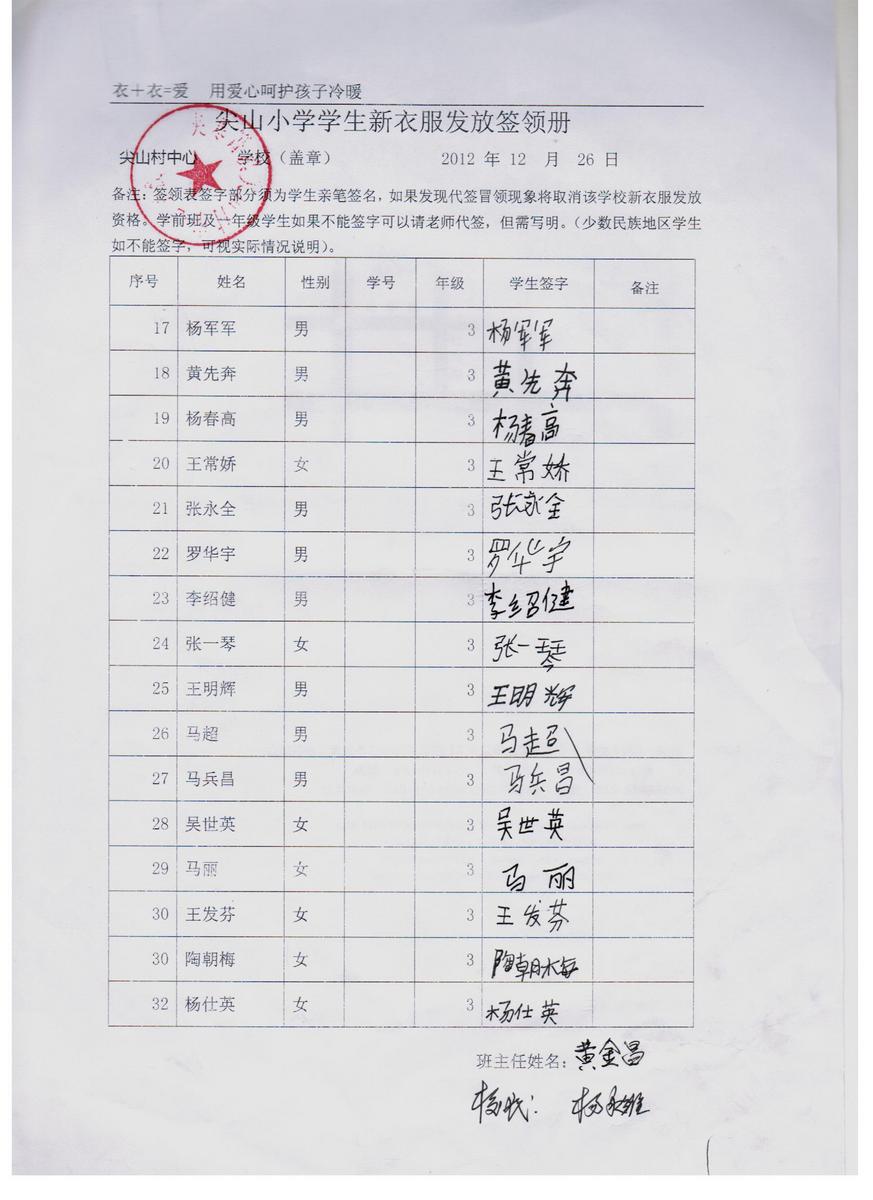 衣+衣=爱 用爱心呵护孩子冷暖
尖山小学学生新衣服发放签领册
尖山村中心 学校（盖章） 2012 年 12 月 26 日
备注：签领表签字部分须为学生亲笔签名，如果发现代签冒领现象将取消该学校新衣服发放
资格。学前班及一年级学生如果不能签字可以请老师代签，但需写明。（少数民族地区学生
如不能签字，可视实际情况说明）。
序号 姓名 性别 学号 年级 学生签字 备注
17 杨军军 男 3 杨军军
18 黄先奔 男 3 黄先奔
19 杨春高 男 3 杨春高
20 王常娇 女 3 王常娇
21 张永全 男 3 张永全
22 罗华宇 男 3 罗华宇
23 李绍健 男 3 李绍健
24 张一琴 女 3 张一琴
25 王明辉 男 3 王明辉
26 马超 男 3 马超
27 马兵昌 男 3 马兵昌
28 吴世英 女 3 吴世英
29 马丽 女 3 马丽
30 王发芬 女 3 王发芬
30 陶朝梅 女 3 陶朝梅
32 杨仕英 女 3 杨仕英
班主任姓名：黄金昌